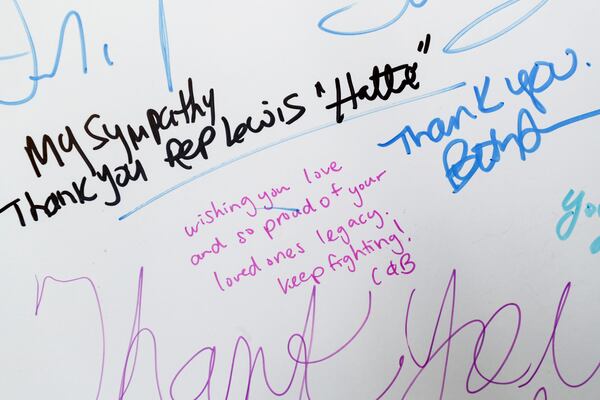 My Sympathy
Thank you Rep Lewis "Hattie"
Thank you.
wishing you love
and so proud of your
loved ones legacy.
keep fighting!
C & B
Thank You